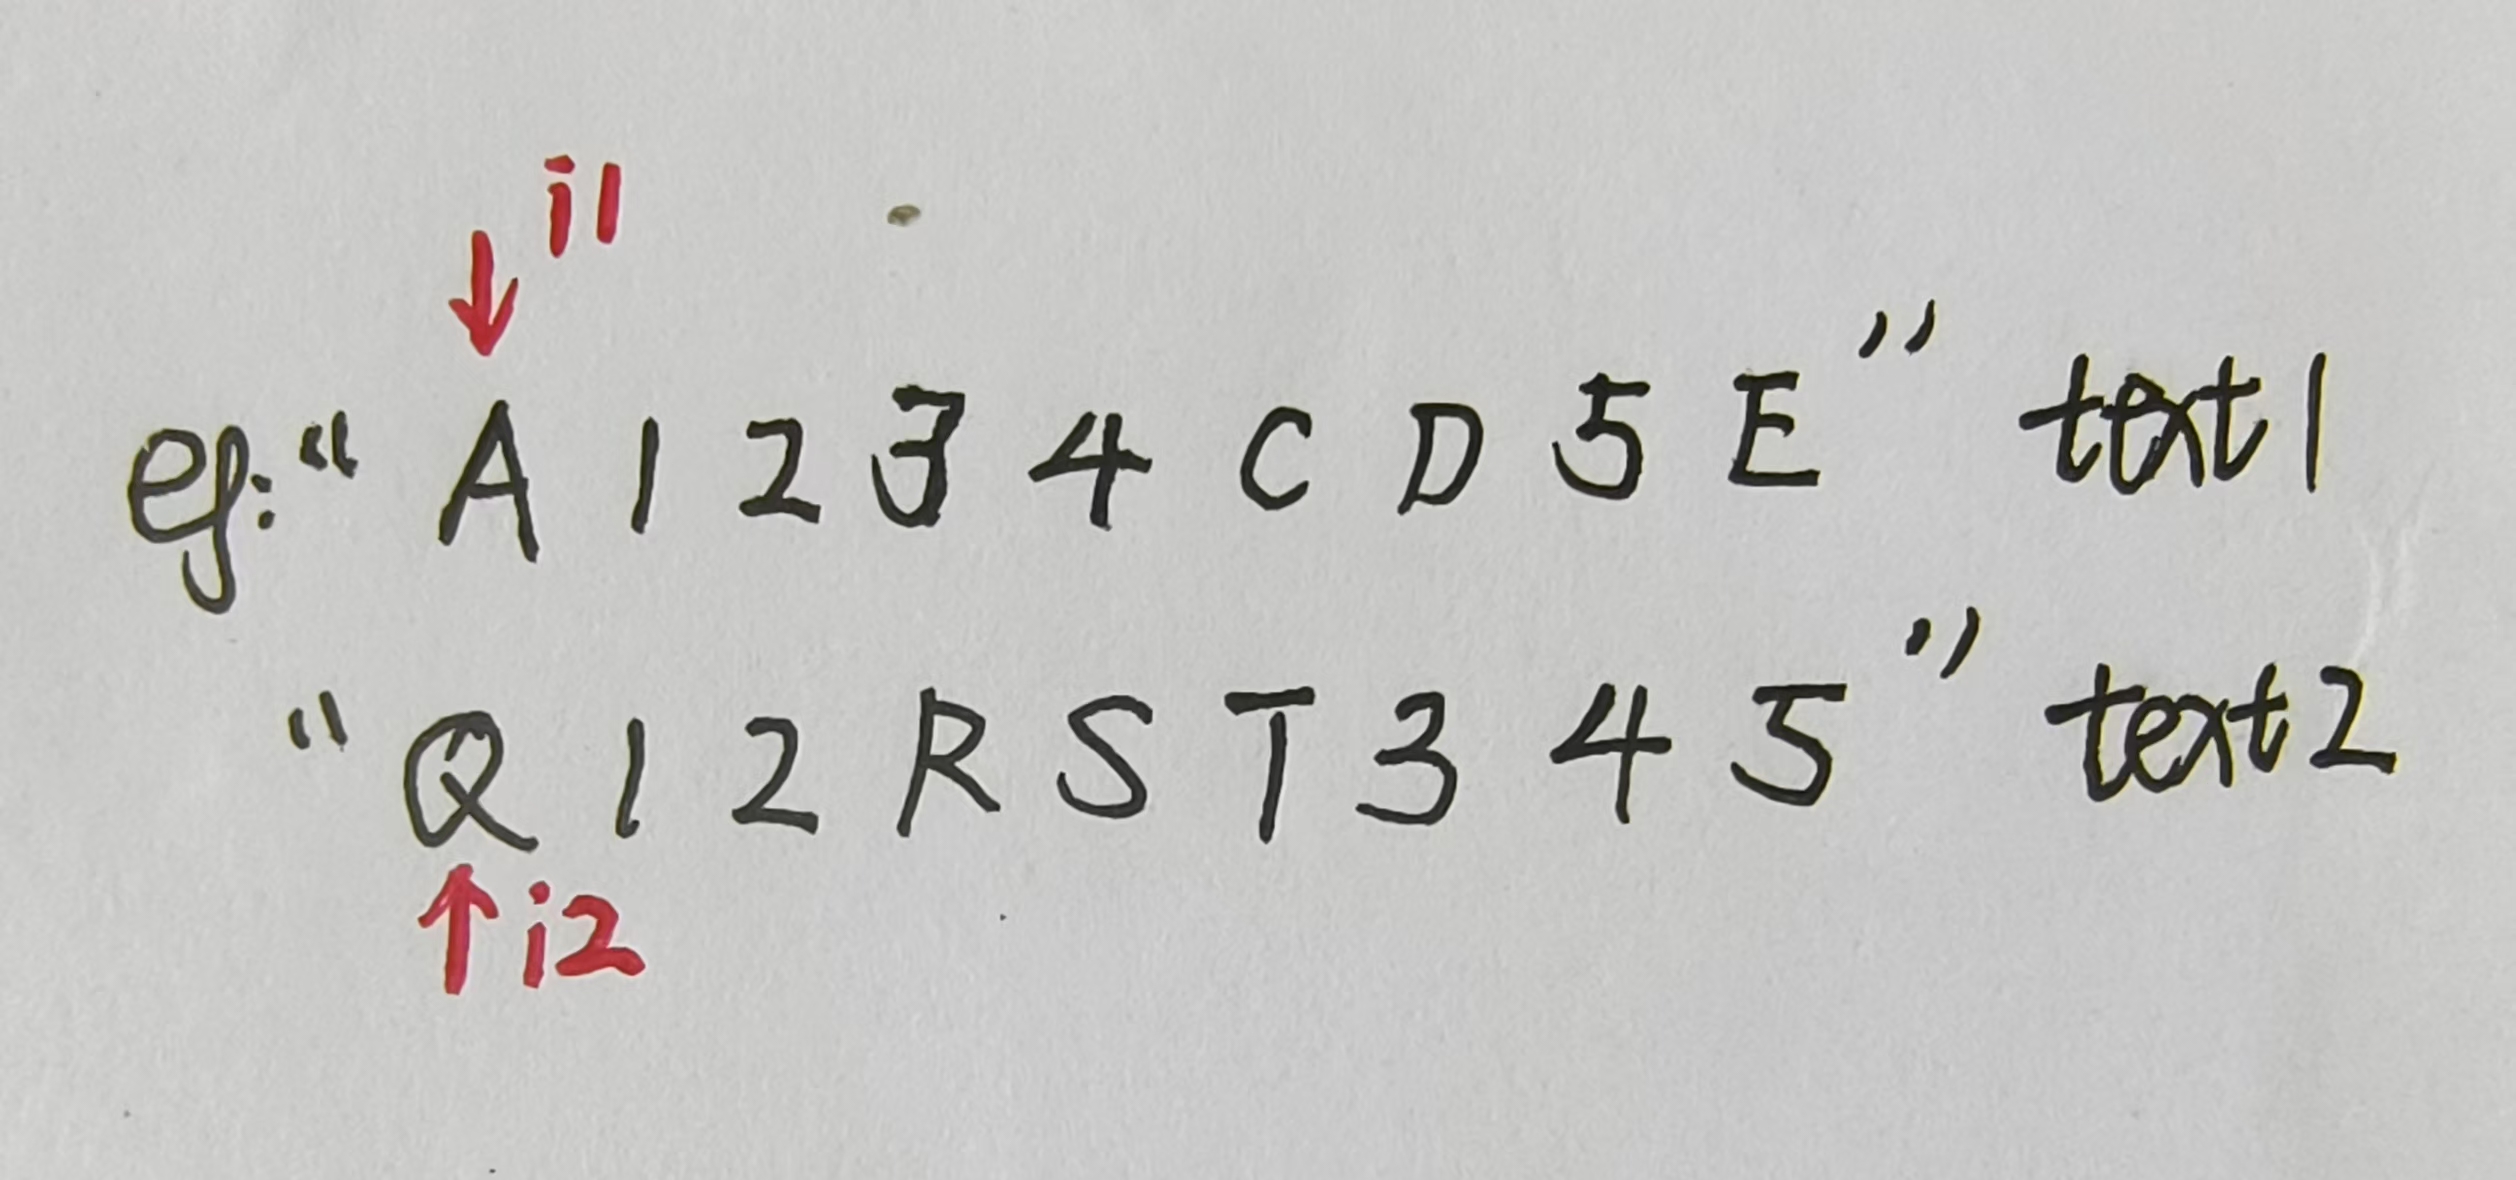 i1
eg: " A 1 2 3 4 C D 5 E " text1
" Q 1 2 R S T 3 4 5 " text2
i2